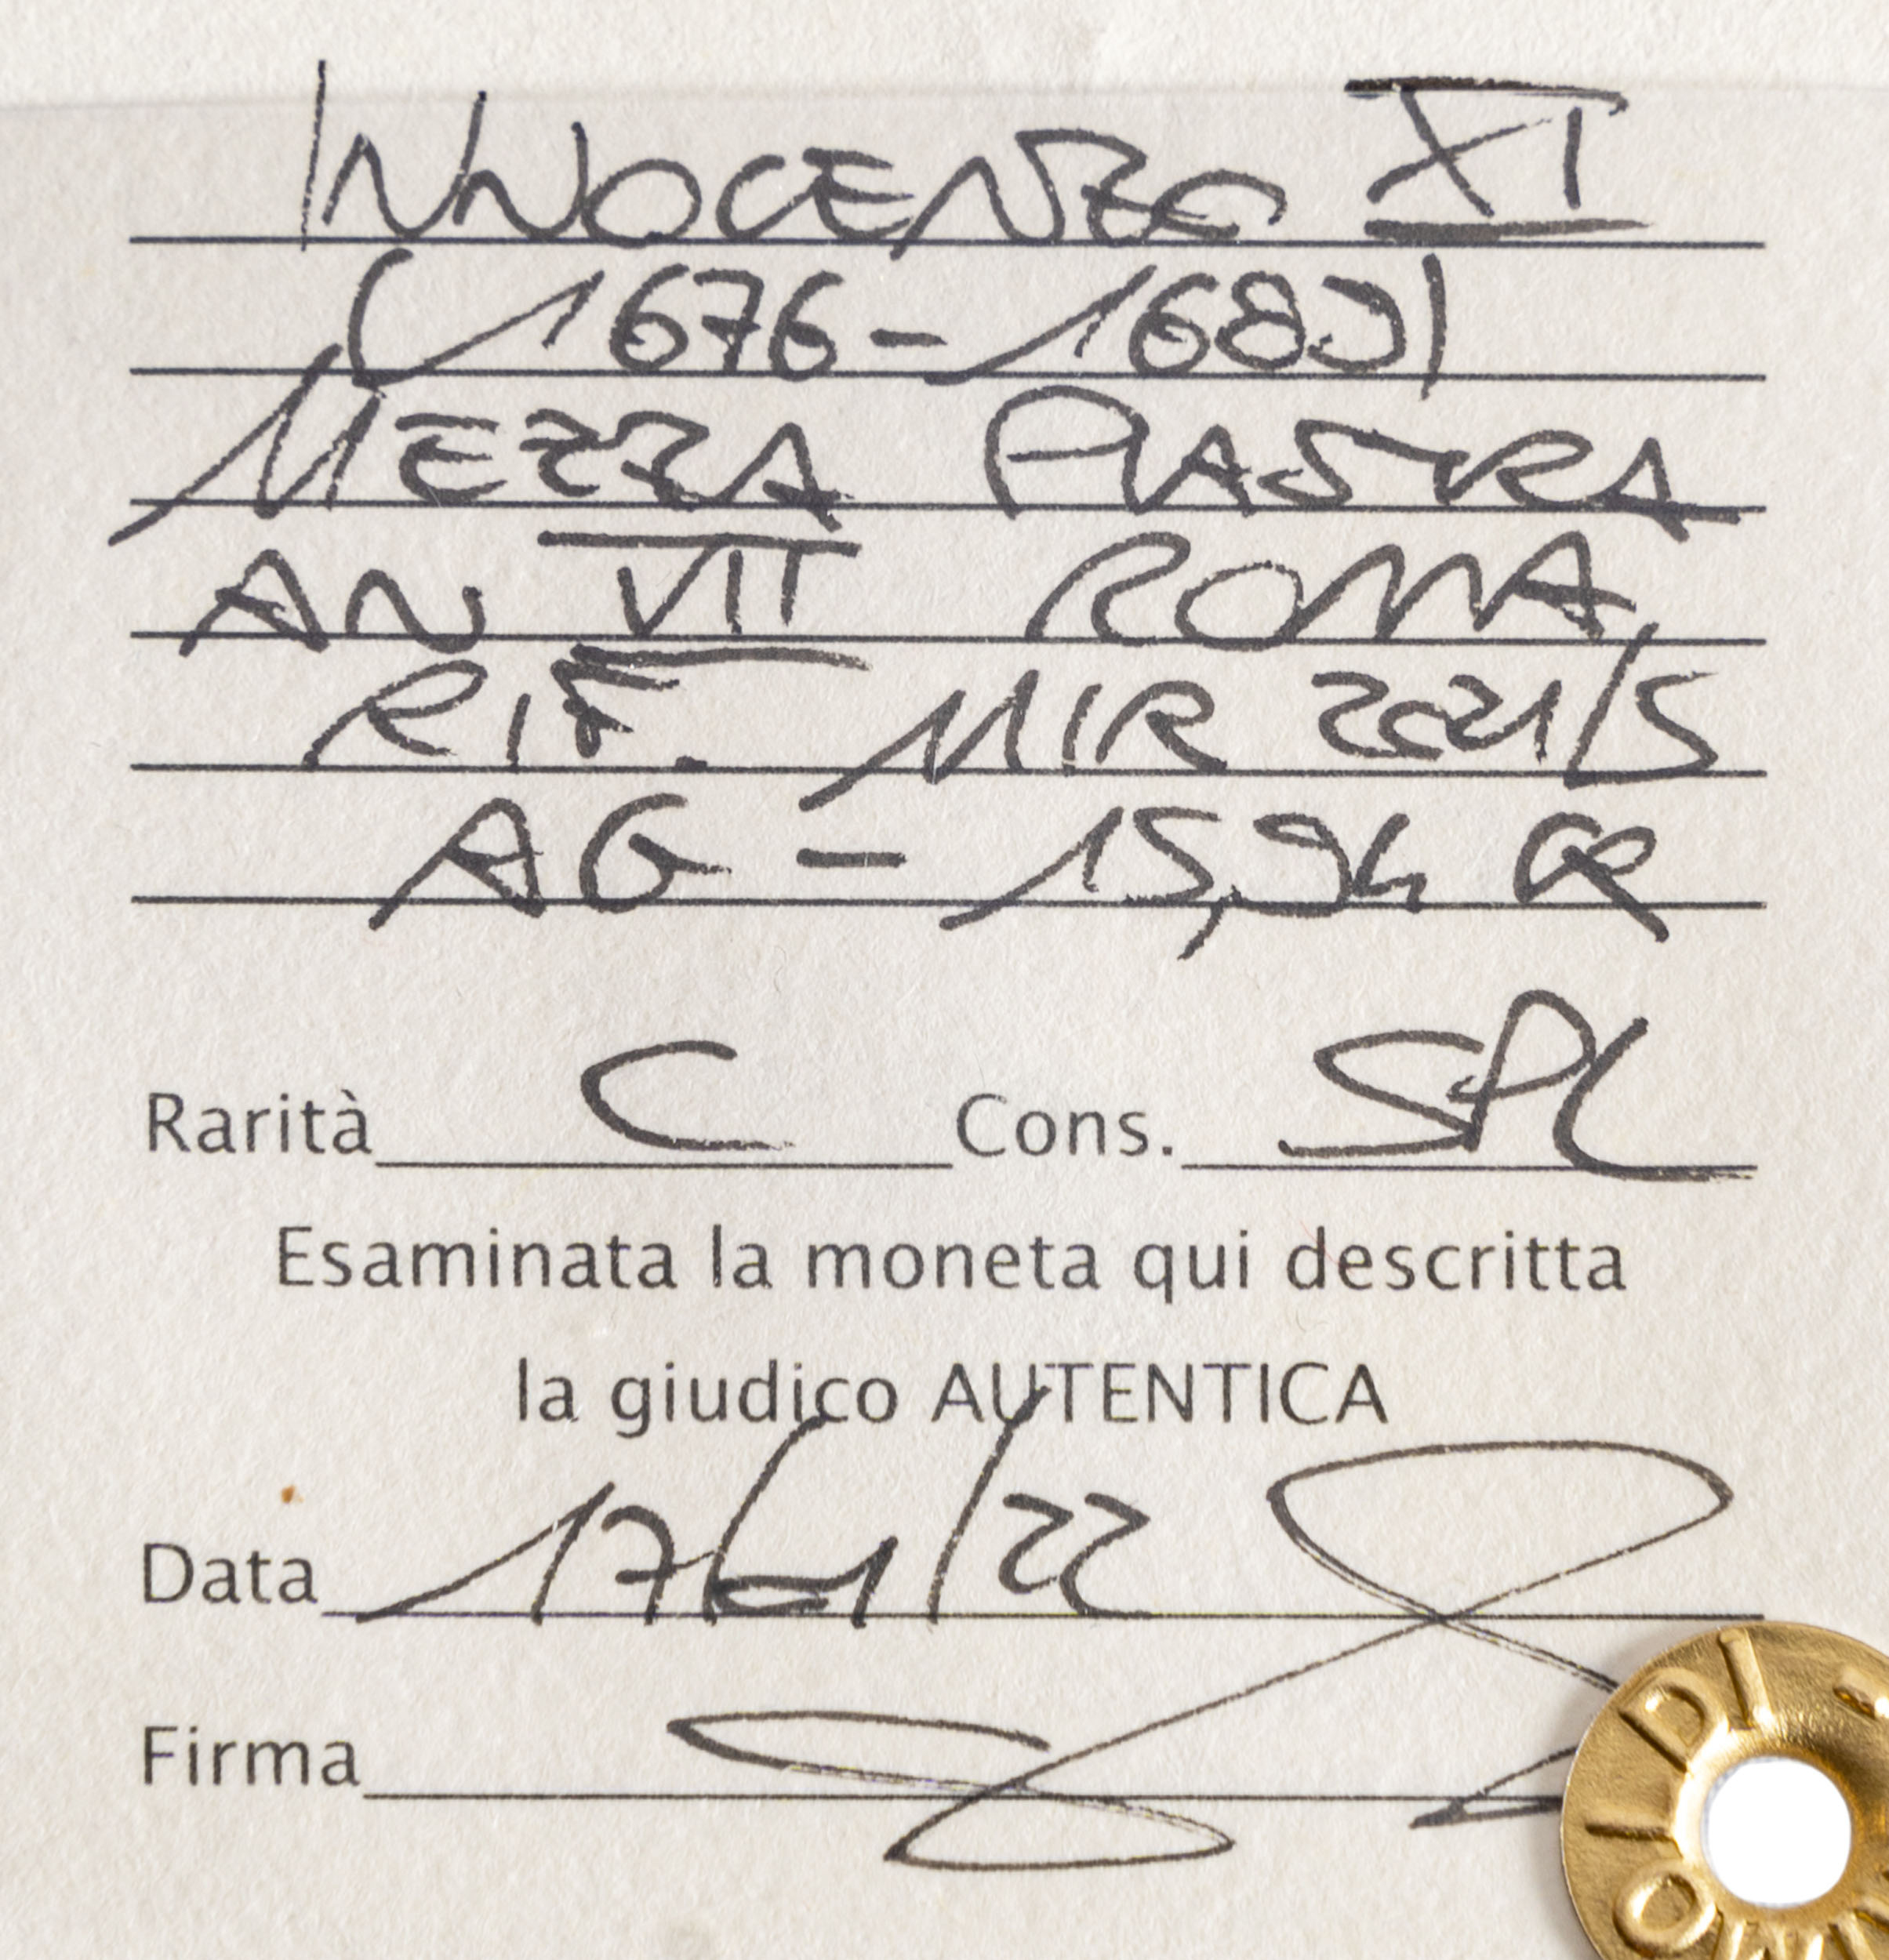 INNOCENZO XI
(1676-1689)
MEZZA PIASTRA
AN VII ROMA
RIF. MIR 2021/5
AG - 15,94 GR
Rarità C Cons. SPL
Esaminata la moneta qui descritta
la giudico AUTENTICA
Data 17/01/22
Firma